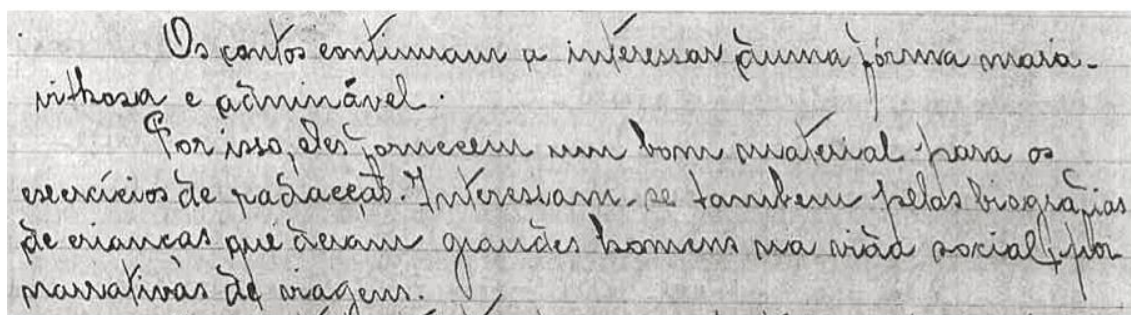 Os contos continuam a interessar duma fórma mara-
vilhosa e admirável.
Por isso, eles fornecem um bom material para os
exercícios de redacção. Interessam-se tambem pelas biografias
de crianças que deram grandes homens na vida social, por
narrativas de viagens.